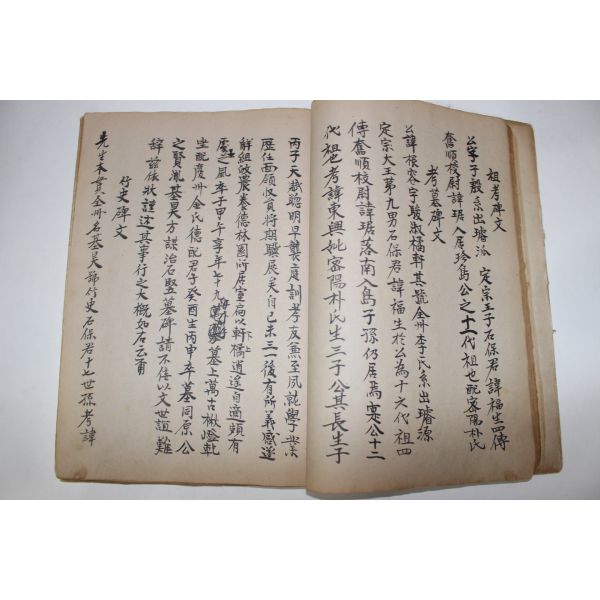 祖考碑文
公字子殷系出璿派 定宗王子石保君諱福生四傳
奮順校尉諱琚入居珍島公之十一代祖也配密陽朴氏
考墓碑文
公諱根容字駿淑橘軒其號全州李氏系出璿源
定宗大王第九男石保君諱福生於公為十六代祖四
傳奮順校尉諱琚落南入島子孫仍居焉寔公十二
代祖也考諱東興妣密陽朴氏生三子公其長生于
丙子天賦聰明早襲庭訓孝友無至夙就學業
歷任面領收員將期驥展矣自己未三一後有所義感遂
解組敀農養德林園所居室扁以軒橘逍遙自適頗有
處士之風卒于甲午享年七十九 墓上萬古楸嶝乾
坐配慶州金氏德配君子癸酉生丙申卒墓同原公
之賢胤基昊方謀治石竪墓碑請不佞以文世誼難
辞玆依狀謹述其事行之大槪如右云爾
竹史碑文
先生本貫全州名基昊號竹史石保君十七世孫考諱